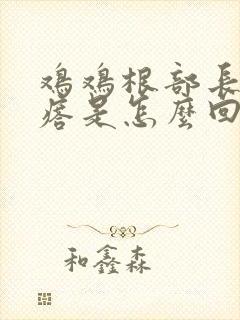 鸡鸡根部長
瘩是怎麼回
和鑫森